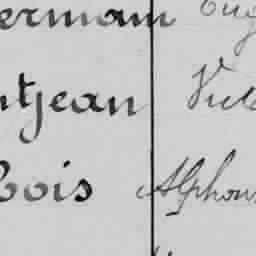 ermann Eug
ntjean Vict
bois Alphons